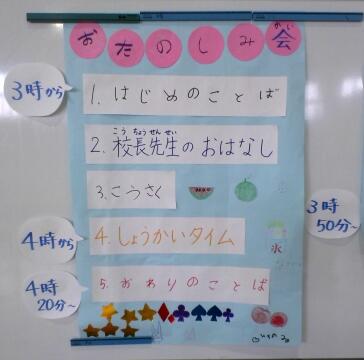 おたのしみ会
かい
3時から
1. はじめのことば
こうちょうせんせい
2. 校長先生のおはなし
3. こうさく
3時
50分~
4時から
4. しょうかいタイム
氷
4時
20分~
5. おわりのことば